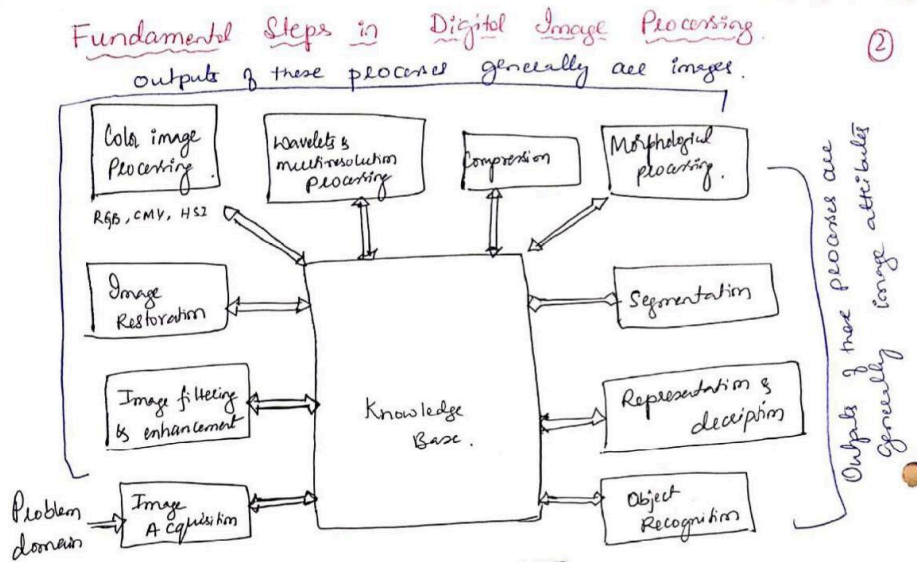 Fundamental Steps in Digital Image Processing.
②
outputs of these processes generally are images.
Color image
Processing
RGB, CMY, HSI
Wavelets &
multiresolution
Processing
Compression
Morphological
processing.
Image
Restoration
Segmentation
Image filtering
& enhancement
Knowledge
Base.
Representation &
decription
Problem
domain
Image
Acquisition
Object
Recognition
Outputs of these processes are
generally image attributes